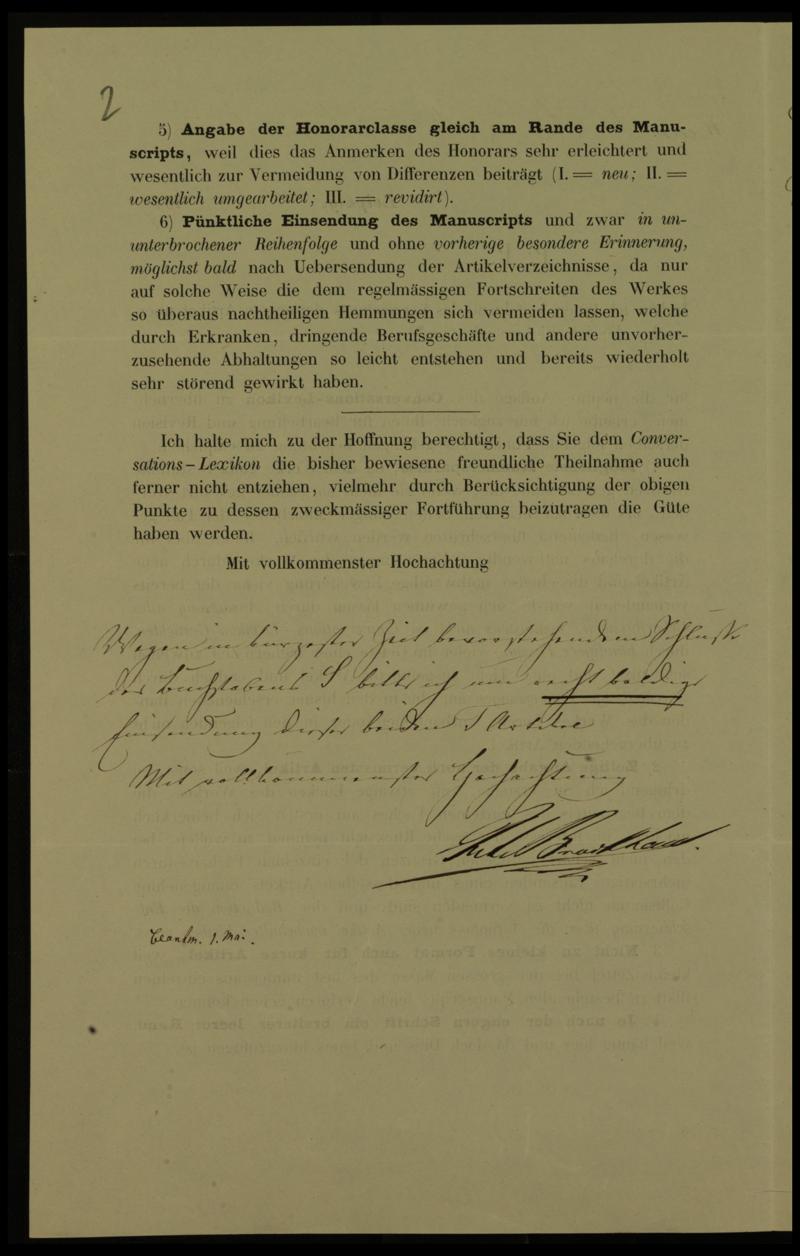 2
5) Angabe der Honorarclasse gleich am Rande des Manu-
scripts, weil dies das Anmerken des Honorars sehr erleichtert und
wesentlich zur Vermeidung von Differenzen beiträgt (I. = neu; II. =
wesentlich umgearbeitet; III. = revidirt).
6) Pünktliche Einsendung des Manuscripts und zwar in un-
unterbrochener Reihenfolge und ohne vorherige besondere Erinnerung,
möglichst bald nach Uebersendung der Artikelverzeichnisse, da nur
auf solche Weise die dem regelmässigen Fortschreiten des Werkes
so überaus nachtheiligen Hemmungen sich vermeiden lassen, welche
durch Erkranken, dringende Berufsgeschäfte und andere unvorher-
zusehende Abhaltungen so leicht entstehen und bereits wiederholt
sehr störend gewirkt haben.
Ich halte mich zu der Hoffnung berechtigt, dass Sie dem Conver-
sations-Lexikon die bisher bewiesene freundliche Theilnahme auch
ferner nicht entziehen, vielmehr durch Berücksichtigung der obigen
Punkte zu dessen zweckmässiger Fortführung beizutragen die Güte
haben werden.
Mit vollkommenster Hochachtung
Wegen in kürzester Zeit bevorstehendem Schluß
des Buchstabens S bitte ich um recht baldige
Einsendung dieser beiden Artikel
Mit vollkommenster Hochachtung
Brockhaus.
beantw. 1. Mai.